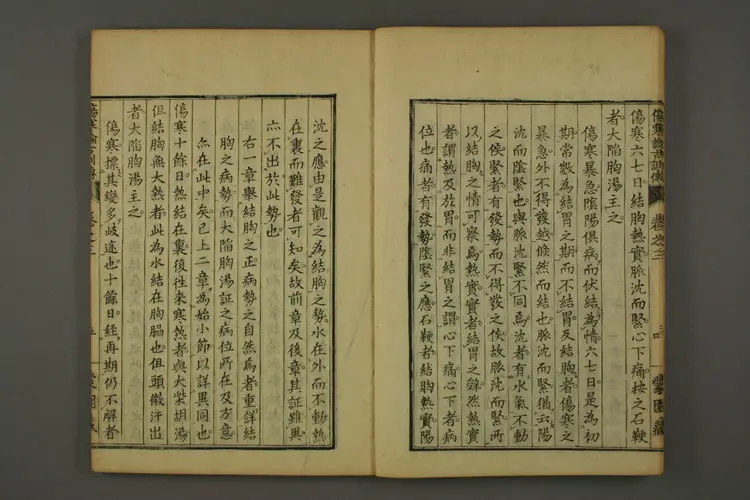 傷寒六七日。結胸熱實。脈沈而緊。心下痛。按之石鞕
者。大陷胸湯主之。
傷寒暴急。陰陽俱病。而伏結為情。六七日。是為初
期常數。為結胃之期。而不結胃。反結胸者。傷寒之
暴急。外不得發越。倏然而結也。脈沈而緊。猶云陽
沈而陰緊也。與脈沈緊不同焉。沈者有水氣不動
之候。緊者有發勢而不得發之候。故脈沈而緊。所
以結胸之情可察焉。熱實。實者結胃之鮮。然熱實
者。謂熱及於胃。而非結胃之謂。心下痛。心下者。病
位也。痛者有發勢。陰緊之應。石鞕者。結胸熱實。陽
沈之應。由是觀之。為結胸之勢。水在外而不動。熱
在裏而難發者可知矣。故前章及後章。其証雖異。
亦不出於此勢也。
右一章。舉結胸之正。病勢之自然焉者。重詳結
胸之病勢。而大陷胸湯証之病位所在。及方意
亦在此中矣。已上二章。為始小節。以詳異同也。
傷寒十餘日。熱結在裏。復往來寒熱者。與大柴胡湯。
但結胸無大熱者。此為水結在胸脇也。但頭微汗出
者。大陷胸湯主之。
傷寒標。其變多岐途也。十餘日。經再期仍不解者